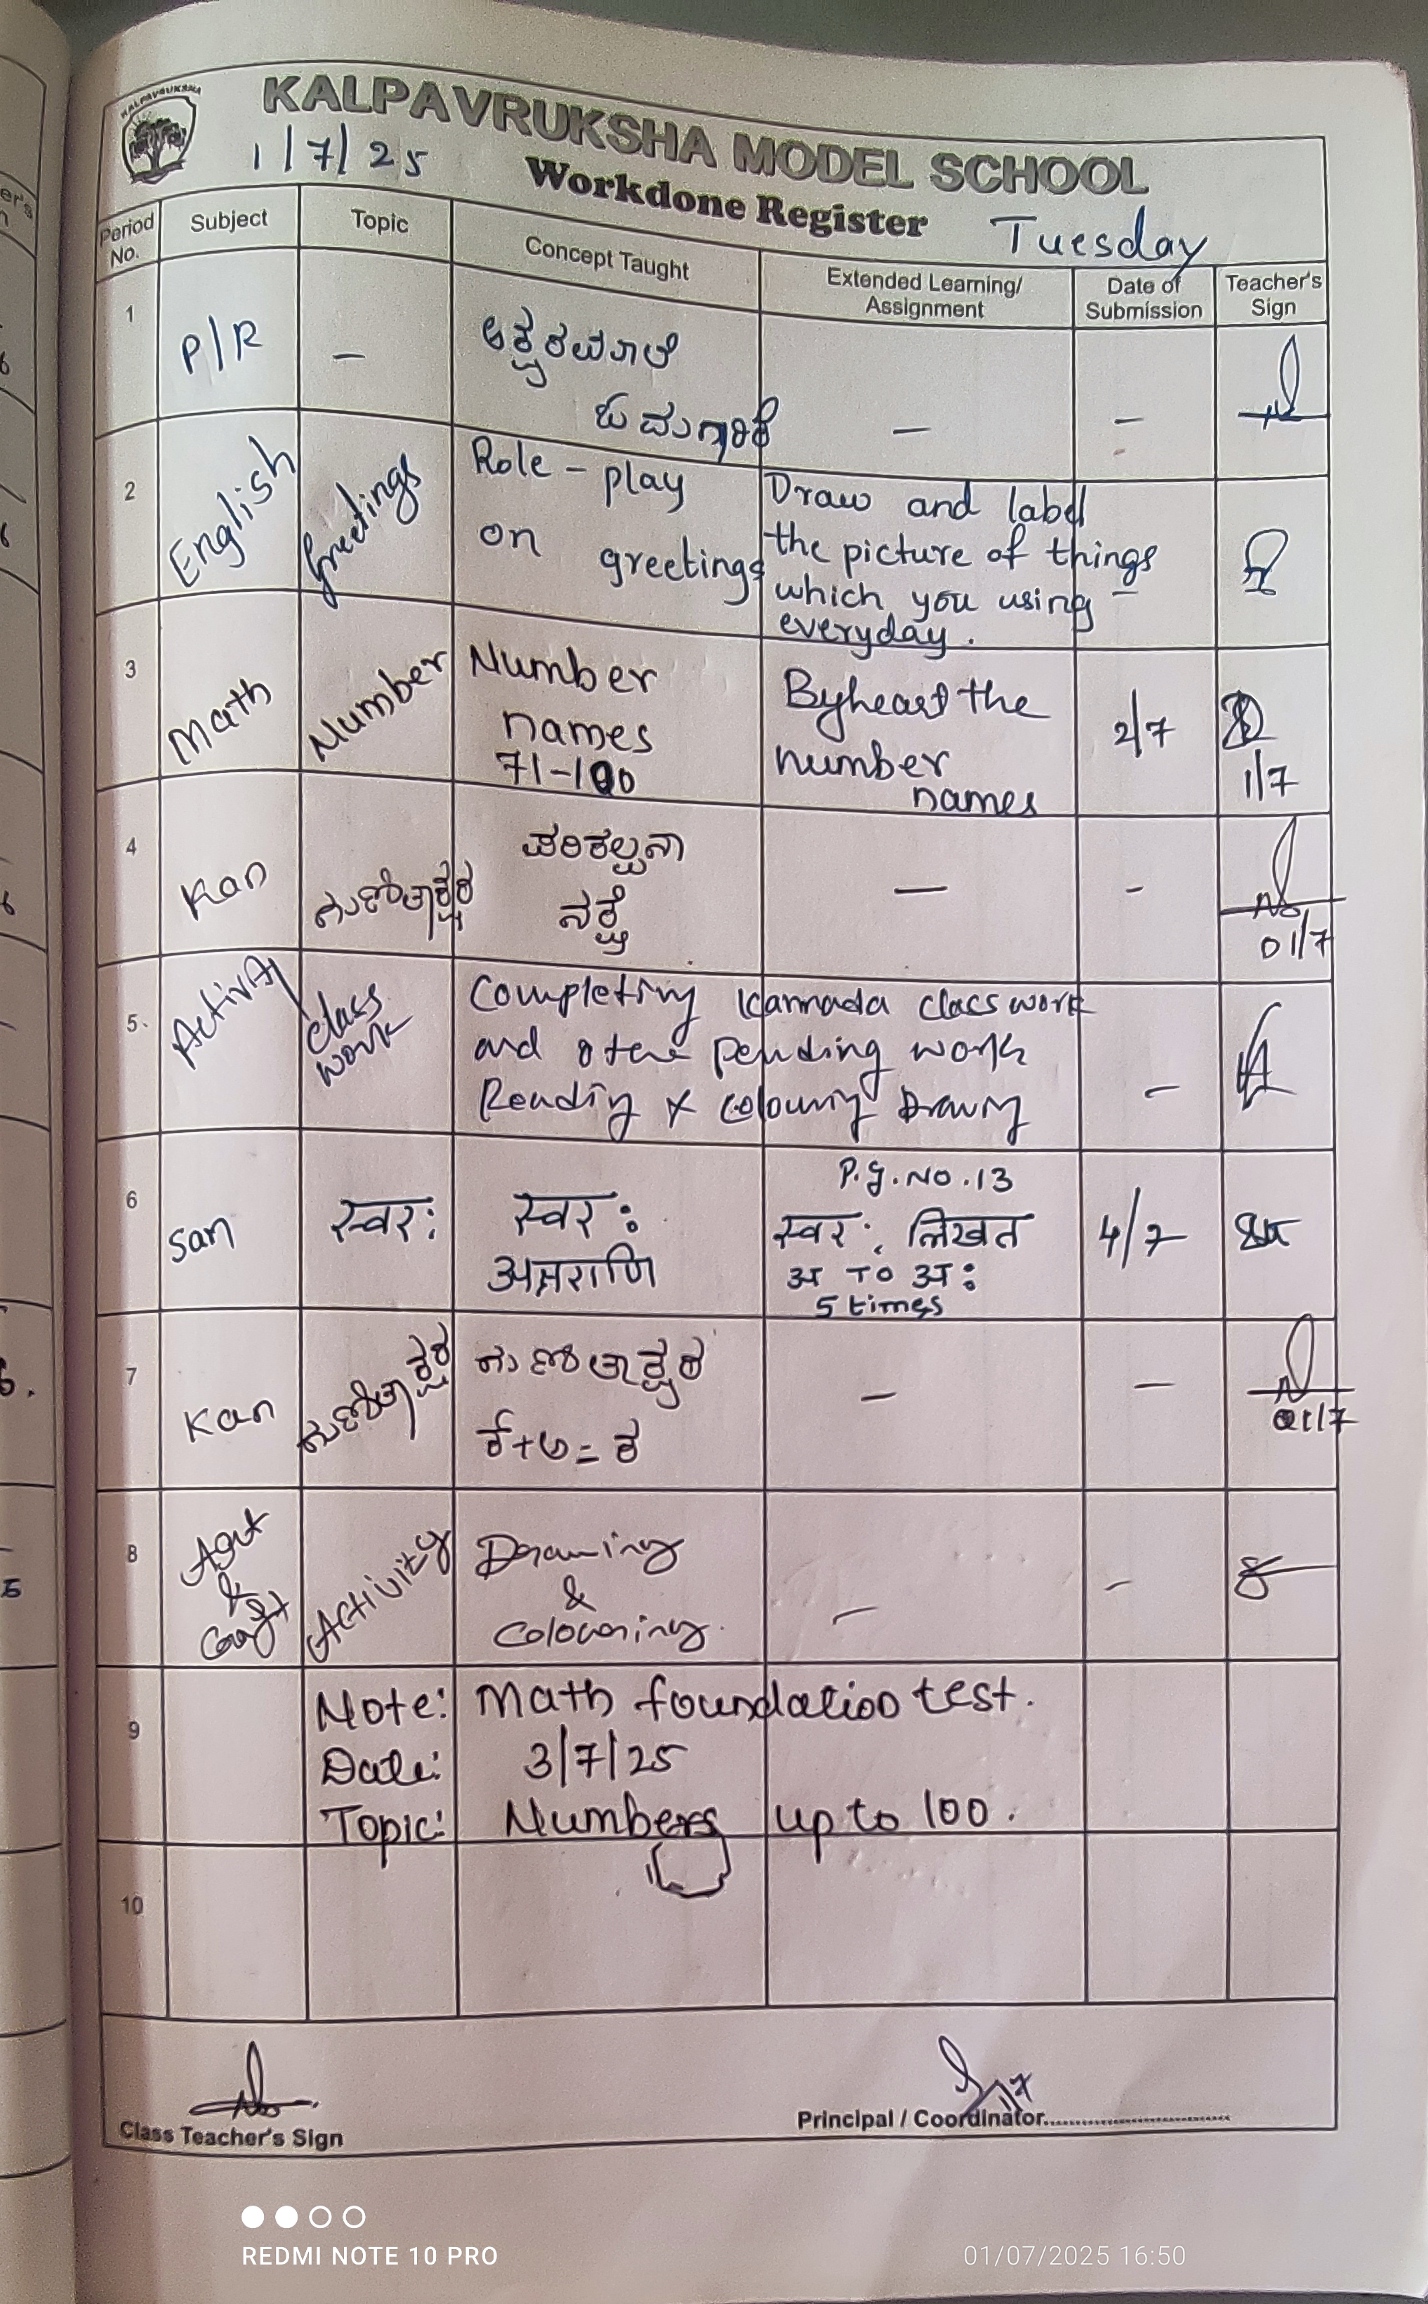 KALPAVRUKSHA
KALPAVRUKSHA MODEL SCHOOL
1/7/25
Workdone Register
Tuesday
Period No. Subject Topic Concept Taught Extended Learning/ Assignment Date of Submission Teacher's Sign
1 P/R — ಅಕ್ಷರಮಾಲೆ
— —
2 English Greetings Role - play on greetings
Draw and label
the picture of things
which you using —
everyday.
3 Math Number Number
names
71-100
Byheart the
number
names
2/7
1/7
4 Kan ಗುಣಿತಾಕ್ಷರ ಪರಿಕಲ್ಪನಾ
ನಕ್ಷೆ
— -
01/7
5. Activity class
work
Completing Kannada class work
and other pending work
Reading & colouring Drawing
—
6 San स्वर: स्वर:
अक्षराणि
P.g.No.13
स्वर: लिखत
अ TO अ:
5 times
4/7
7 Kan ಗುಣಿತಾಕ್ಷರ ಗುಣಿತಾಕ್ಷರ
ಕ್+ಅ=ಕ
— —
01/7
8 Art
&
Craft
Activity Drawing
&
Colouring.
— —
9 Note: Math foundation test.
Date: 3/7/25
Topic: Numbers up to 100.
10
Class Teacher's Sign
Principal / Coordinator
REDMI NOTE 10 PRO
01/07/2025 16:50